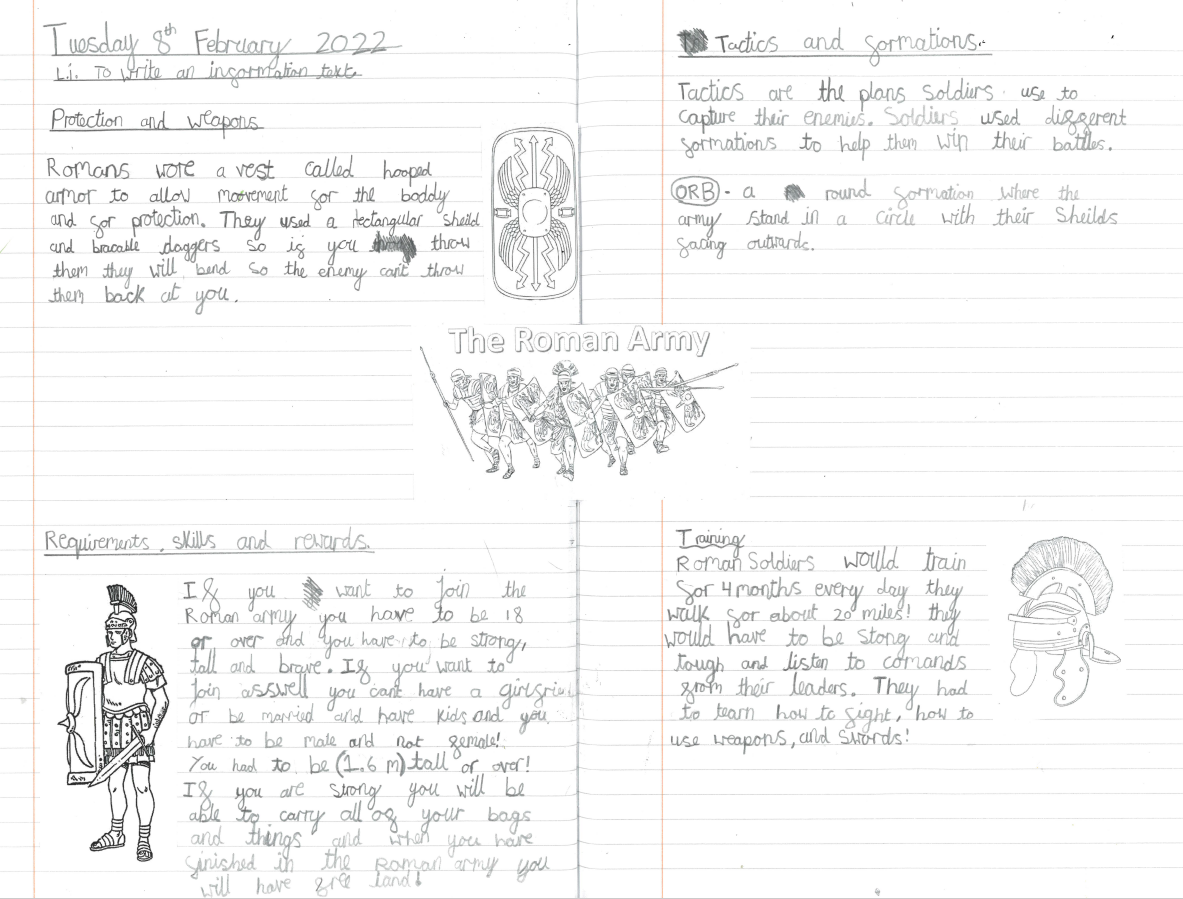 Tuesday 8th February 2022
L.i. To write an information text
Protection and weapons
Romans wore a vest called hooped
armor to allow movement for the boddy
and for protection. They used a rectangular sheild
and bracable daggers so if you throw
them they will bend so the enemy can't throw
them back at you.
Tactics and formations.
Tactics are the plans soldiers use to
capture their enemies. Soldiers used different
formations to help them win their battles.
ORB - a round formation where the
army stand in a circle with their sheilds
facing outwards.
The Roman Army
Requirements, skills and rewards.
If you want to join the
Roman army you have to be 18
or over and you have to be strong,
tall and brave. If you want to
join asswell you cant have a girlfrien
or be married and have kids and you
have to be male and not female!
You had to be (1.6 m) tall or over!
If you are strong you will be
able to carry all of your bags
and things and when you have
finished in the Roman army you
will have free land!
Training
Roman Soldiers would train
for 4 months every day they
walk for about 20 miles! they
would have to be stong and
tough and listen to comands
from their leaders. They had
to learn how to fight, how to
use weapons, and swords!